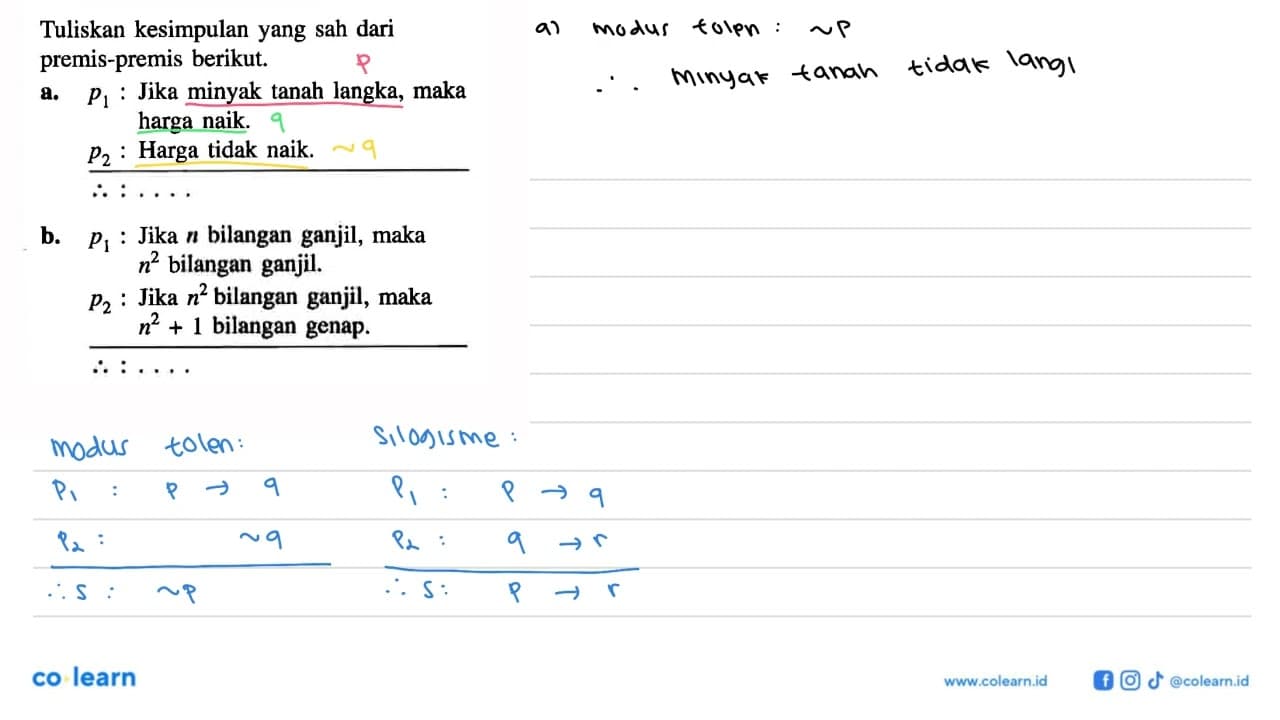 Tuliskan kesimpulan yang sah dari
premis-premis berikut.
p
a. p₁ : Jika minyak tanah langka, maka
harga naik. q
p₂ : Harga tidak naik. ~q
∴ : . . . .
b. p₁ : Jika n bilangan ganjil, maka
n² bilangan ganjil.
p₂ : Jika n² bilangan ganjil, maka
n² + 1 bilangan genap.
∴ : . . . .
a) modus tolen : ~p
∴ minyak tanah tidak langı
modus tolen:
P₁ : p → q
P₂ : ~q
∴ s : ~p
Silogisme :
P₁ : p → q
P₂ : q → r
∴ s : p → r
co learn
www.colearn.id
@colearn.id